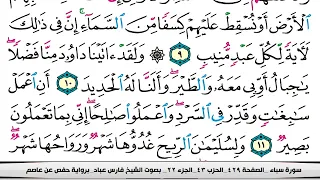 ٱلۡأَرۡضَ أَوۡ نُسۡقِطۡ عَلَيۡهِمۡ كِسَفٗا مِّنَ ٱلسَّمَآءِۚ إِنَّ فِي ذَٰلِكَ
لَأٓيَةٗ لِّكُلِّ عَبۡدٖ مُّنِيبٖ ٩ ۞ وَلَقَدۡ ءَاتَيۡنَا دَاوُۥدَ مِنَّا فَضۡلٗاۖ
يَٰجِبَالُ أَوِّبِي مَعَهُۥ وَٱلطَّيۡرَۖ وَأَلَنَّا لَهُ ٱلۡحَدِيدَ ١٠ أَنِ ٱعۡمَلۡ
سَٰبِغَٰتٖ وَقَدِّرۡ فِي ٱلسَّرۡدِۖ وَٱعۡمَلُواْ صَٰلِحًاۖ إِنِّي بِمَا تَعۡمَلُونَ
بَصِيرٞ ١١ وَلِسُلَيۡمَٰنَ ٱلرِّيحَ غُدُوُّهَا شَهۡرٞ وَرَوَاحُهَا شَهۡرٞۖ
سورة سباء _الصفحة ٤٢٩_الحزب ٤٣_الجزء ٢٢_ بصوت الشيخ فارس عباد_برواية حفص عن عاصم